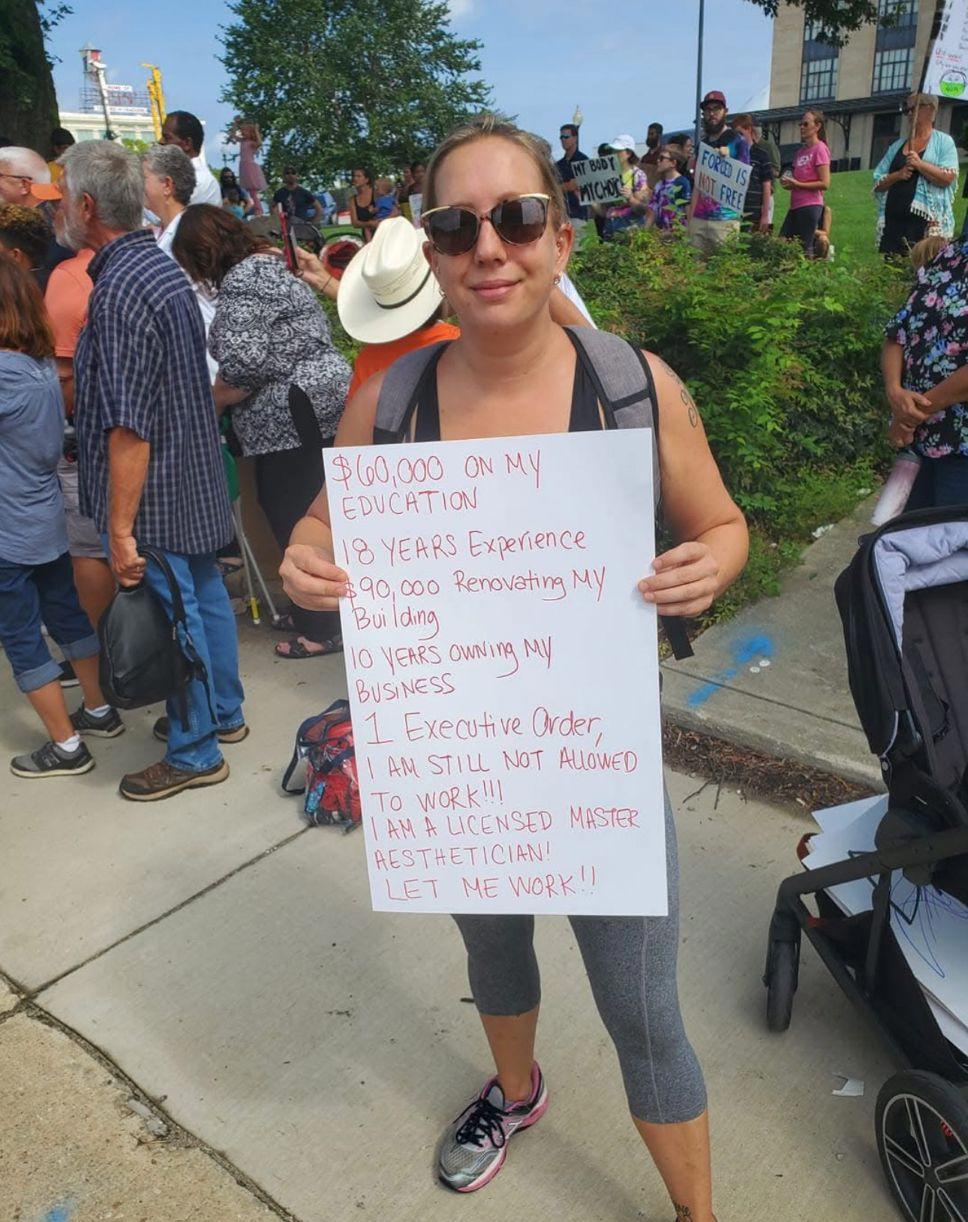 $60,000 ON MY
EDUCATION
18 YEARS Experience
$90,000 Renovating MY
Building
10 YEARS owning MY
BUSINESS
1 Executive Order,
I AM STILL NOT ALLOWED
TO WORK!!!
I AM A LICENSED MASTER
AESTHETICIAN!
LET ME WORK!!
MY BODY
MY CHOICE
FORCED IS
NOT FREE